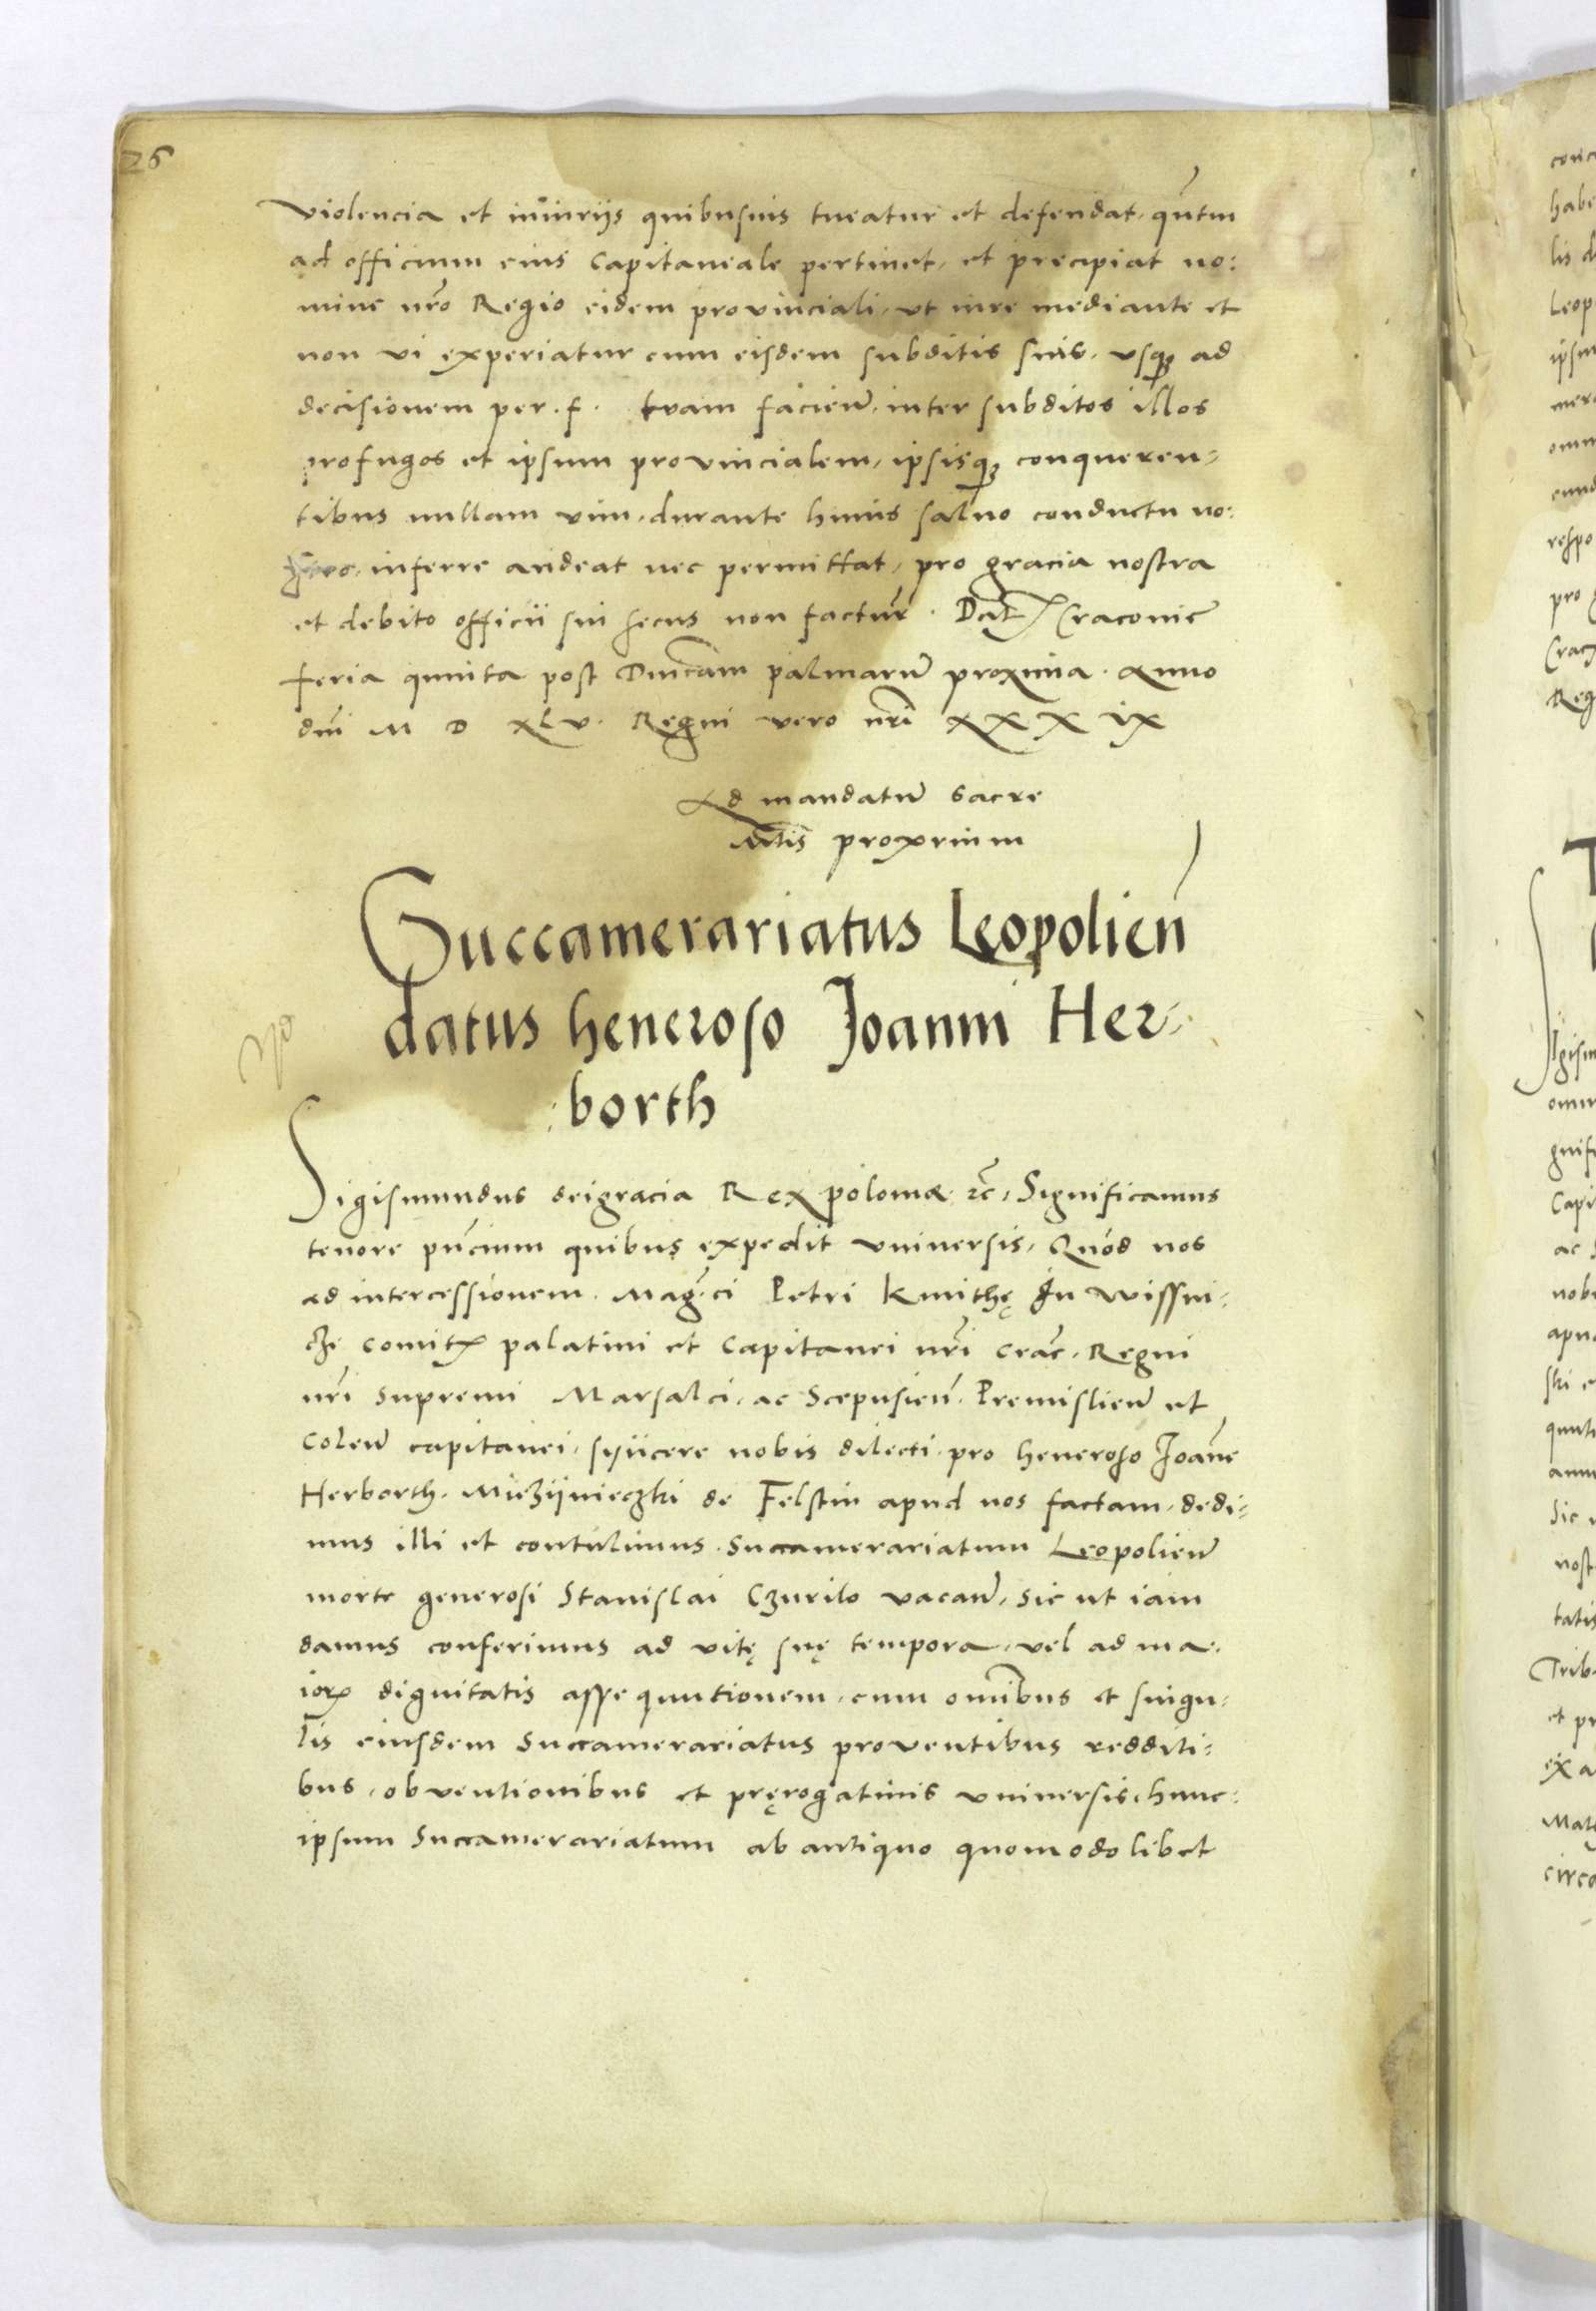 26
violencia et iniuriis quibusuis tueatur et defendat, qn̄tum
ad officium eius Capitaneale pertinet, et precipiat no:
mine nr̄o Regio eidem provinciali, ut iure mediante et
non vi experiatur cum eisdem subditis suis, usq3 ad
decisionem per. f. tvam faciend̄, inter subditos illos
profugos et ipsum provincialem, ipsisq3 conqueren-
tibus nullam vim, durante huius saluo conductu no:
inferre audeat nec permittat, pro gracia nostra
et debito officii sui secus non factur̄. Dat Cracovie
feria quinta post Dn̄icam palmarū proxima. Anno
dn̄i M D XLV. Regni vero nr̄i XXXIX
Ad mandatū sacre
Mtis proprium
Succamerariatus Leopolien̄
datus heneroso Joanni Her-
borth
Sigismundus dei gracia Rex polonię ec̄, Significamus
tenore pn̄cium quibus expedit universis, Quód nos
ad intercessionem. Mag.ci Petri Kmithę In Wissni-
cze comit palatini et Capitanei nr̄i crac̄, Regni
nr̄i supremi Marsalci, ac Scepusien̄. Premislien̄ et
Colen̄ capitanei, syncere nobis dilecti, pro heneroso Joan̄e
Herborth. Miezijnieczki de Felstin apud nos factam, dedi-
mus illi et contulimus. Succamerariatum Leopolien̄
morte generosi Stanislai Czurilo vacan̄, sic ut iam
damus conferimus ad vitę suę tempora, vel ad ma-
ior dignitatis assequutionem, cum omībus et singu-
lis eiusdem Succamerariatus proventibus redditi-
bus, obventionibus et pręrogatiuis universis, hunc-
ipsum Succamerariatum ab antiquo quomodolibet